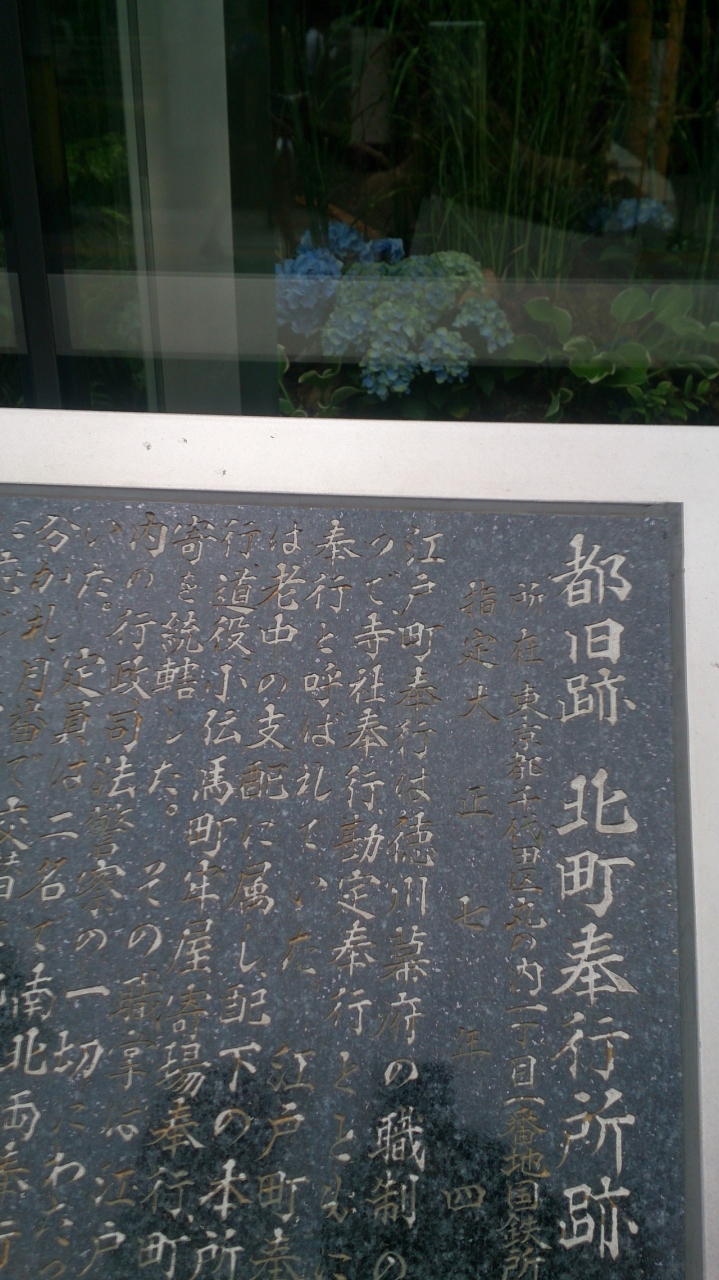 都旧跡 北町奉行所跡
所在 東京都千代田区丸の内一丁目一番地国鉄所
指定 大正七年四
江戸町奉行は徳川幕府の職制の
で寺社奉行勘定奉行とともに
奉行と呼ばれていた 江戸町奉
は老中の支配に属し配下の本所
行道役小伝馬町牢屋寄場奉行町
寄を統轄した。その職掌は江戸
内の行政司法警察の一切にわたっ
いた。定員は二名で南北両奉行
分か礼月番で交替